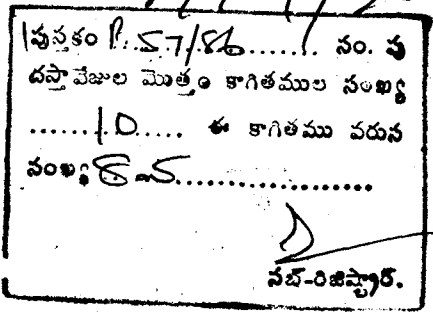 1 పుస్తకం P. 57/86....... నం. పు
దస్తావేజుల మొత్తం కాగితముల సంఖ్య
......10..... ఈ కాగితము వరుస
సంఖ్య ....................
సబ్-రిజిష్ట్రార్.